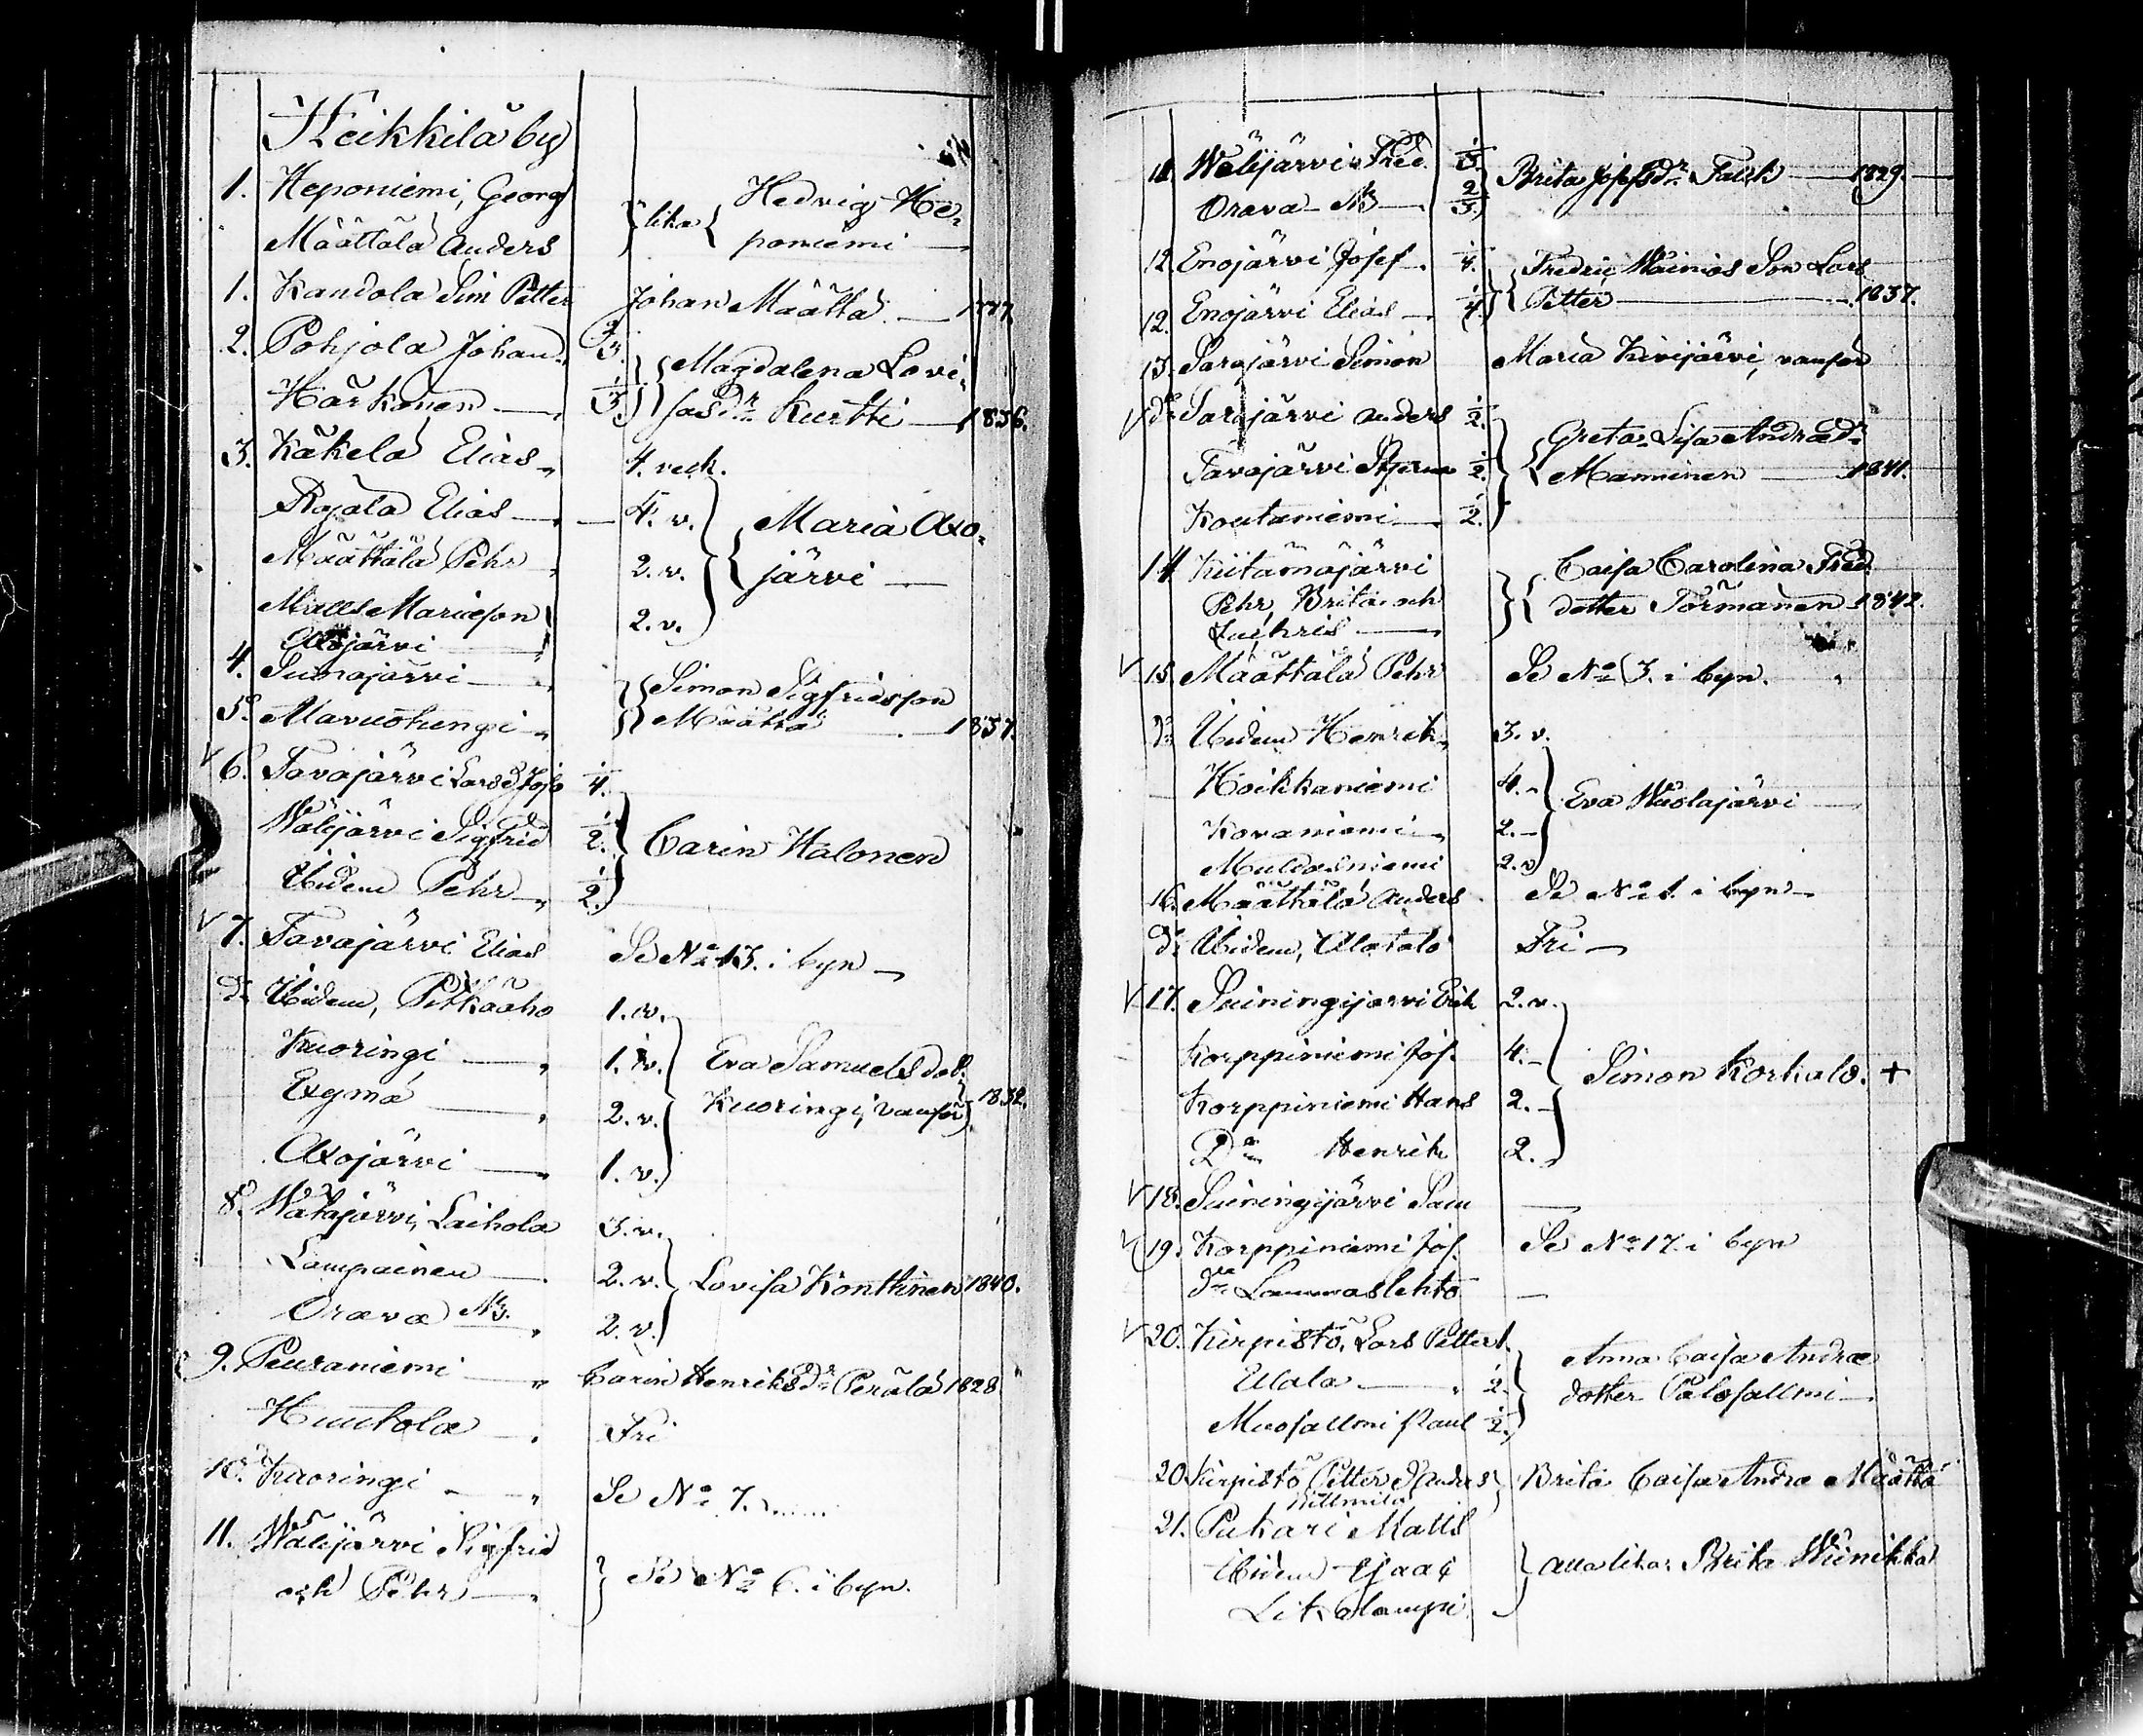 Heikkilä by
1. Heponiemi, Georg } lika { Hedvig He-
Määttälä Anders poniemi —
1. Kandola Sim Petter Johan Määttä — 1777.
2. Pohjola Johan 2/3. } { Magdalena Lovi-
Härkönen — 1/3. sasdr Kurtti — 1836.
3. Käkelä Elias 4. veck.
Rajala Elias — 4. v. } { Maria Axo-
Määttälä Pehr 2. v. järvi —
Matts Mariesson 2. v.
Axojärvi
4. Suonajärvi — } { Simon Sigfridsson
5. Mavuohengi Määttä — 1837.
V 6. Tavajärvi Lars d Joso 1/4.
Wälijärvi Sigfrid 1/2. } Carin Halonen
Ibidem Pehr 1/2.
V 7. Tavajärvi Elias Se No 13. i byn —
do Ibidem, Pitkäaho 1. v.
Kuoringi — 1. v. } Eva Samuelsdot.
Exymä — 2. v. Kuoringi, vanför } 1832.
Axojärvi — 1. v.
8. Watajärvi, Laihola 3. v.
Lampainen — 2. v. } Lovisa Konttinen 1840.
Orava N3. 2. v.
9. Peuraniemi — Carin Henriksdr Perälä 1828
Huutola — Fri
10. Kuoringi — Se No 7.
11. Wälijärvi Sigfrid } Se No 6. i byn.
och Pehr —
11. Wälijärvi Fred. 1/3. } Brita Josefsdr Falck — 1829.
Orava N3 — 2/3.
12. Enojärvi Josef 1/4. } { Fredric Wäiniös Son Lars
12. Enojärvi Elias — 1/4. Petter — 1837.
13. Sarajärvi Simon Maria Kivijärvi, vanför
V do Sarajärvi Anders 1/2. } { Greta Lisa Andræd:r
Tavajärvi 1/2. Manninen — 1841.
Koutaniemi — 1/2.
14. Kiitämäjärvi } { Caisa Carolina Fred.
Pehr, Brita och dotter Törmänen 1842.
V 15. Määttälä Pehr Se No 3. i byn.
do Ibidem Henrik 3. v.
Hoikkaniemi 4. — } Eva Wuolajärvi —
Kovaniemi 2. —
Mulcasniemi 2. v
16. Määttälä Anders Se No 1. i byn —
do Ibidem, Alatalo Fri —
V 17. Suiningijärvi Erik 2. v.
Korppiniemi Jos. 4. — } Simon Korkalo. +
Korppiniemi Hans 2. —
Do Henrik 2.
V 18. Suiningijärvi Sam —
V 19. Korppiniemi Jos. Se No 17. i byn
do Lammaslehto —
V 20. Kirpistö, Lars Petter 1. } Anna Caisa Andræ
Ulala — 1/2. dotter Palosallmi —
Muosallmi Paul 1/2.
20. Kirpistö Petter & Anders } Brita Caisa Andræ Määttä
21. Pukari Matts
Ibidem Isaac } alla lika: Brita Wiinikka
Likolampi